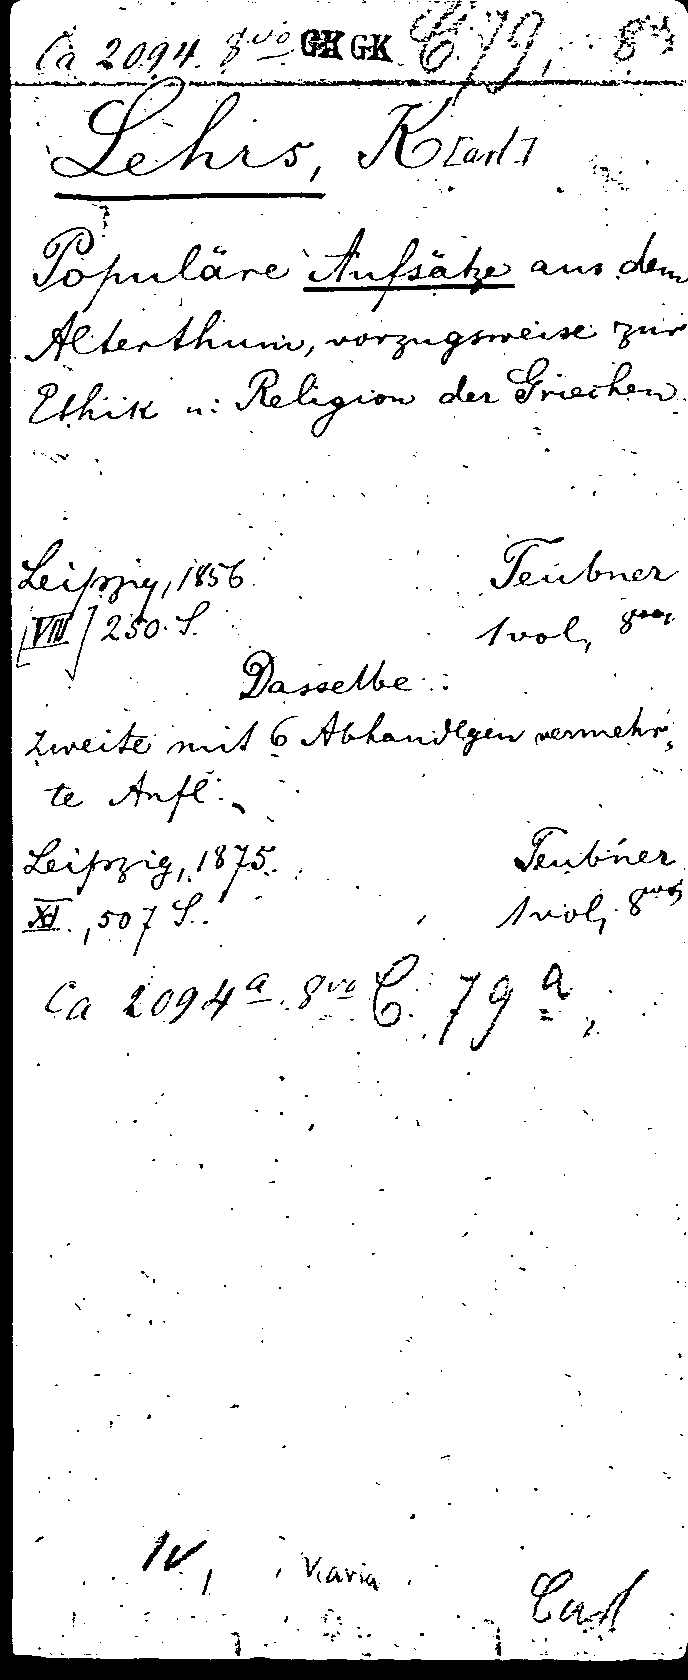 Ca 2094. 8vo GK GK C. 79, 8vo
Lehrs, K[arl.]
Populäre Aufsätze aus dem
Alterthum, vorzugsweise zur
Ethik u: Religion der Griechen.
Leipzig, 1856. Teubner
[VIII] 250. S. 1 vol, 8vo,
Dasselbe:
zweite mit 6 Abhandlgen vermehr-
te Aufl.
Leipzig, 1875. Teubner
XI., 507 S. 1 vol, 8vo,
Ca 2094 a. 8vo C. 79 a,
IV, Varia